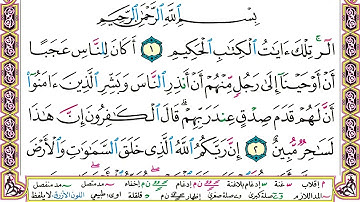 بِسْمِ اللَّهِ الرَّحْمَٰنِ الرَّحِيمِ
الٓر ۚ تِلْكَ ءَايَٰتُ الْكِتَٰبِ الْحَكِيمِ ١ أَكَانَ لِلنَّاسِ عَجَبًا
أَنْ أَوْحَيْنَآ إِلَىٰ رَجُلٍ مِّنْهُمْ أَنْ أَنذِرِ النَّاسَ وَبَشِّرِ الَّذِينَ ءَامَنُوٓا۟
أَنَّ لَهُمْ قَدَمَ صِدْقٍ عِندَ رَبِّهِمْ ۗ قَالَ الْكَٰفِرُونَ إِنَّ هَٰذَا
لَسَٰحِرٌ مُّبِينٌ ٢ إِنَّ رَبَّكُمُ اللَّهُ الَّذِى خَلَقَ السَّمَٰوَٰتِ وَالْأَرْضَ
إقلاب غنة إدغام بلاغنة إدغام إخفاء مد متصل مد منفصل
المد اللازم صلة كبرى صلة صغرى إظهار قلقلة